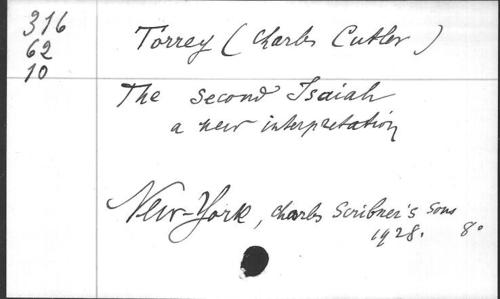 316
62
10
Torrey (Charles Cutler)
The second Isaiah
a new interpretation
New-York, Charles Scribner's sons
1928. 8°